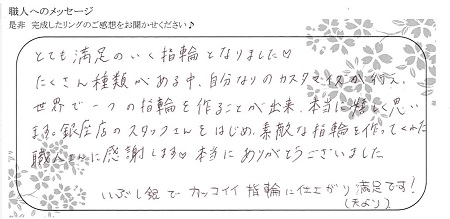 職人へのメッセージ
是非 完成したリングのご感想をお聞かせください♪
とても満足のいく指輪となりました♡
たくさん種類がある中、自分なりのカスタマイズが行え、
世界で一つの指輪を作ることが出来、本当に嬉しく思い
ます。銀座店のスタッフさんをはじめ、素敵な指輪を作ってくれた
職人さんに感謝します♡本当にありがとうございました
いぶし銀でカッコイイ指輪に仕上がり満足です!
(夫より)